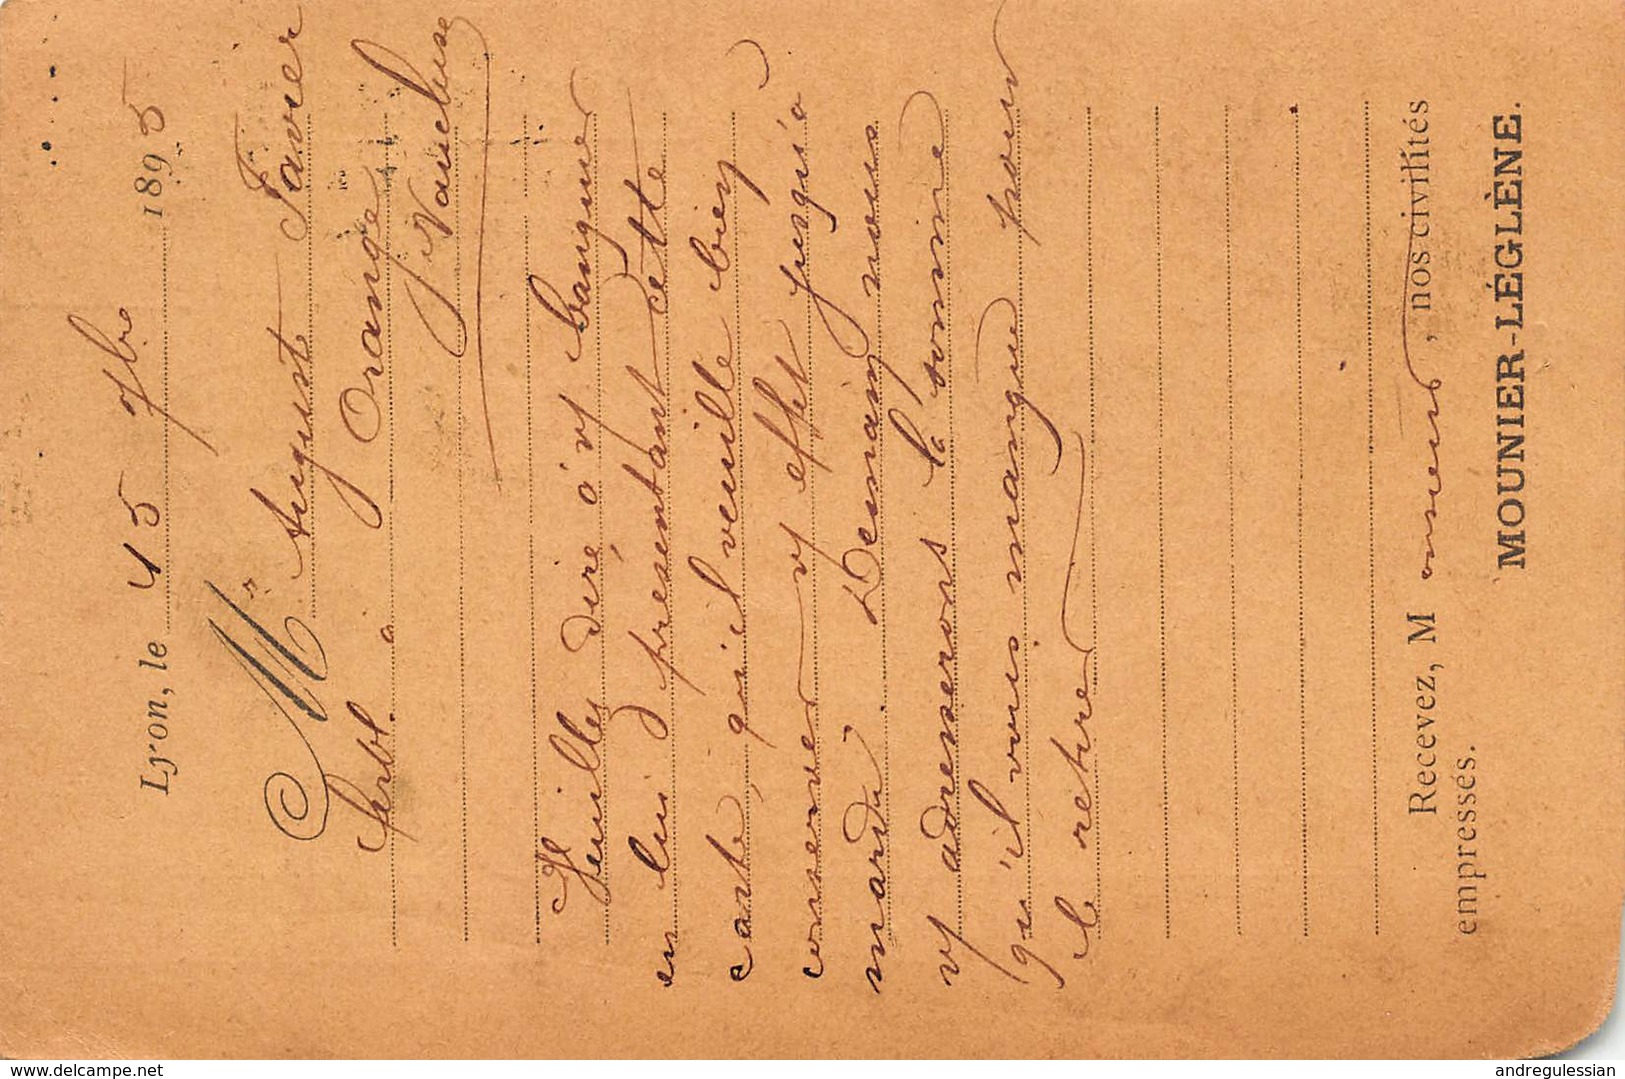 Lyon, le 15 7bre 1895
Mr August Favier
ferbt à Orange
Vaucluse
Veuillez dire à vf banquier
en lui présentant cette
carte, qu'il veuille bien
conserver vf effet jusqu'à
mardi. Demain nous
vf adresserons la somme
qu'il vous manque pour
le retirer
Recevez, M onsieur, nos civilités
empressés.
MOUNIER-LÉGLÈNE.
www.delcampe.net
andregulessian